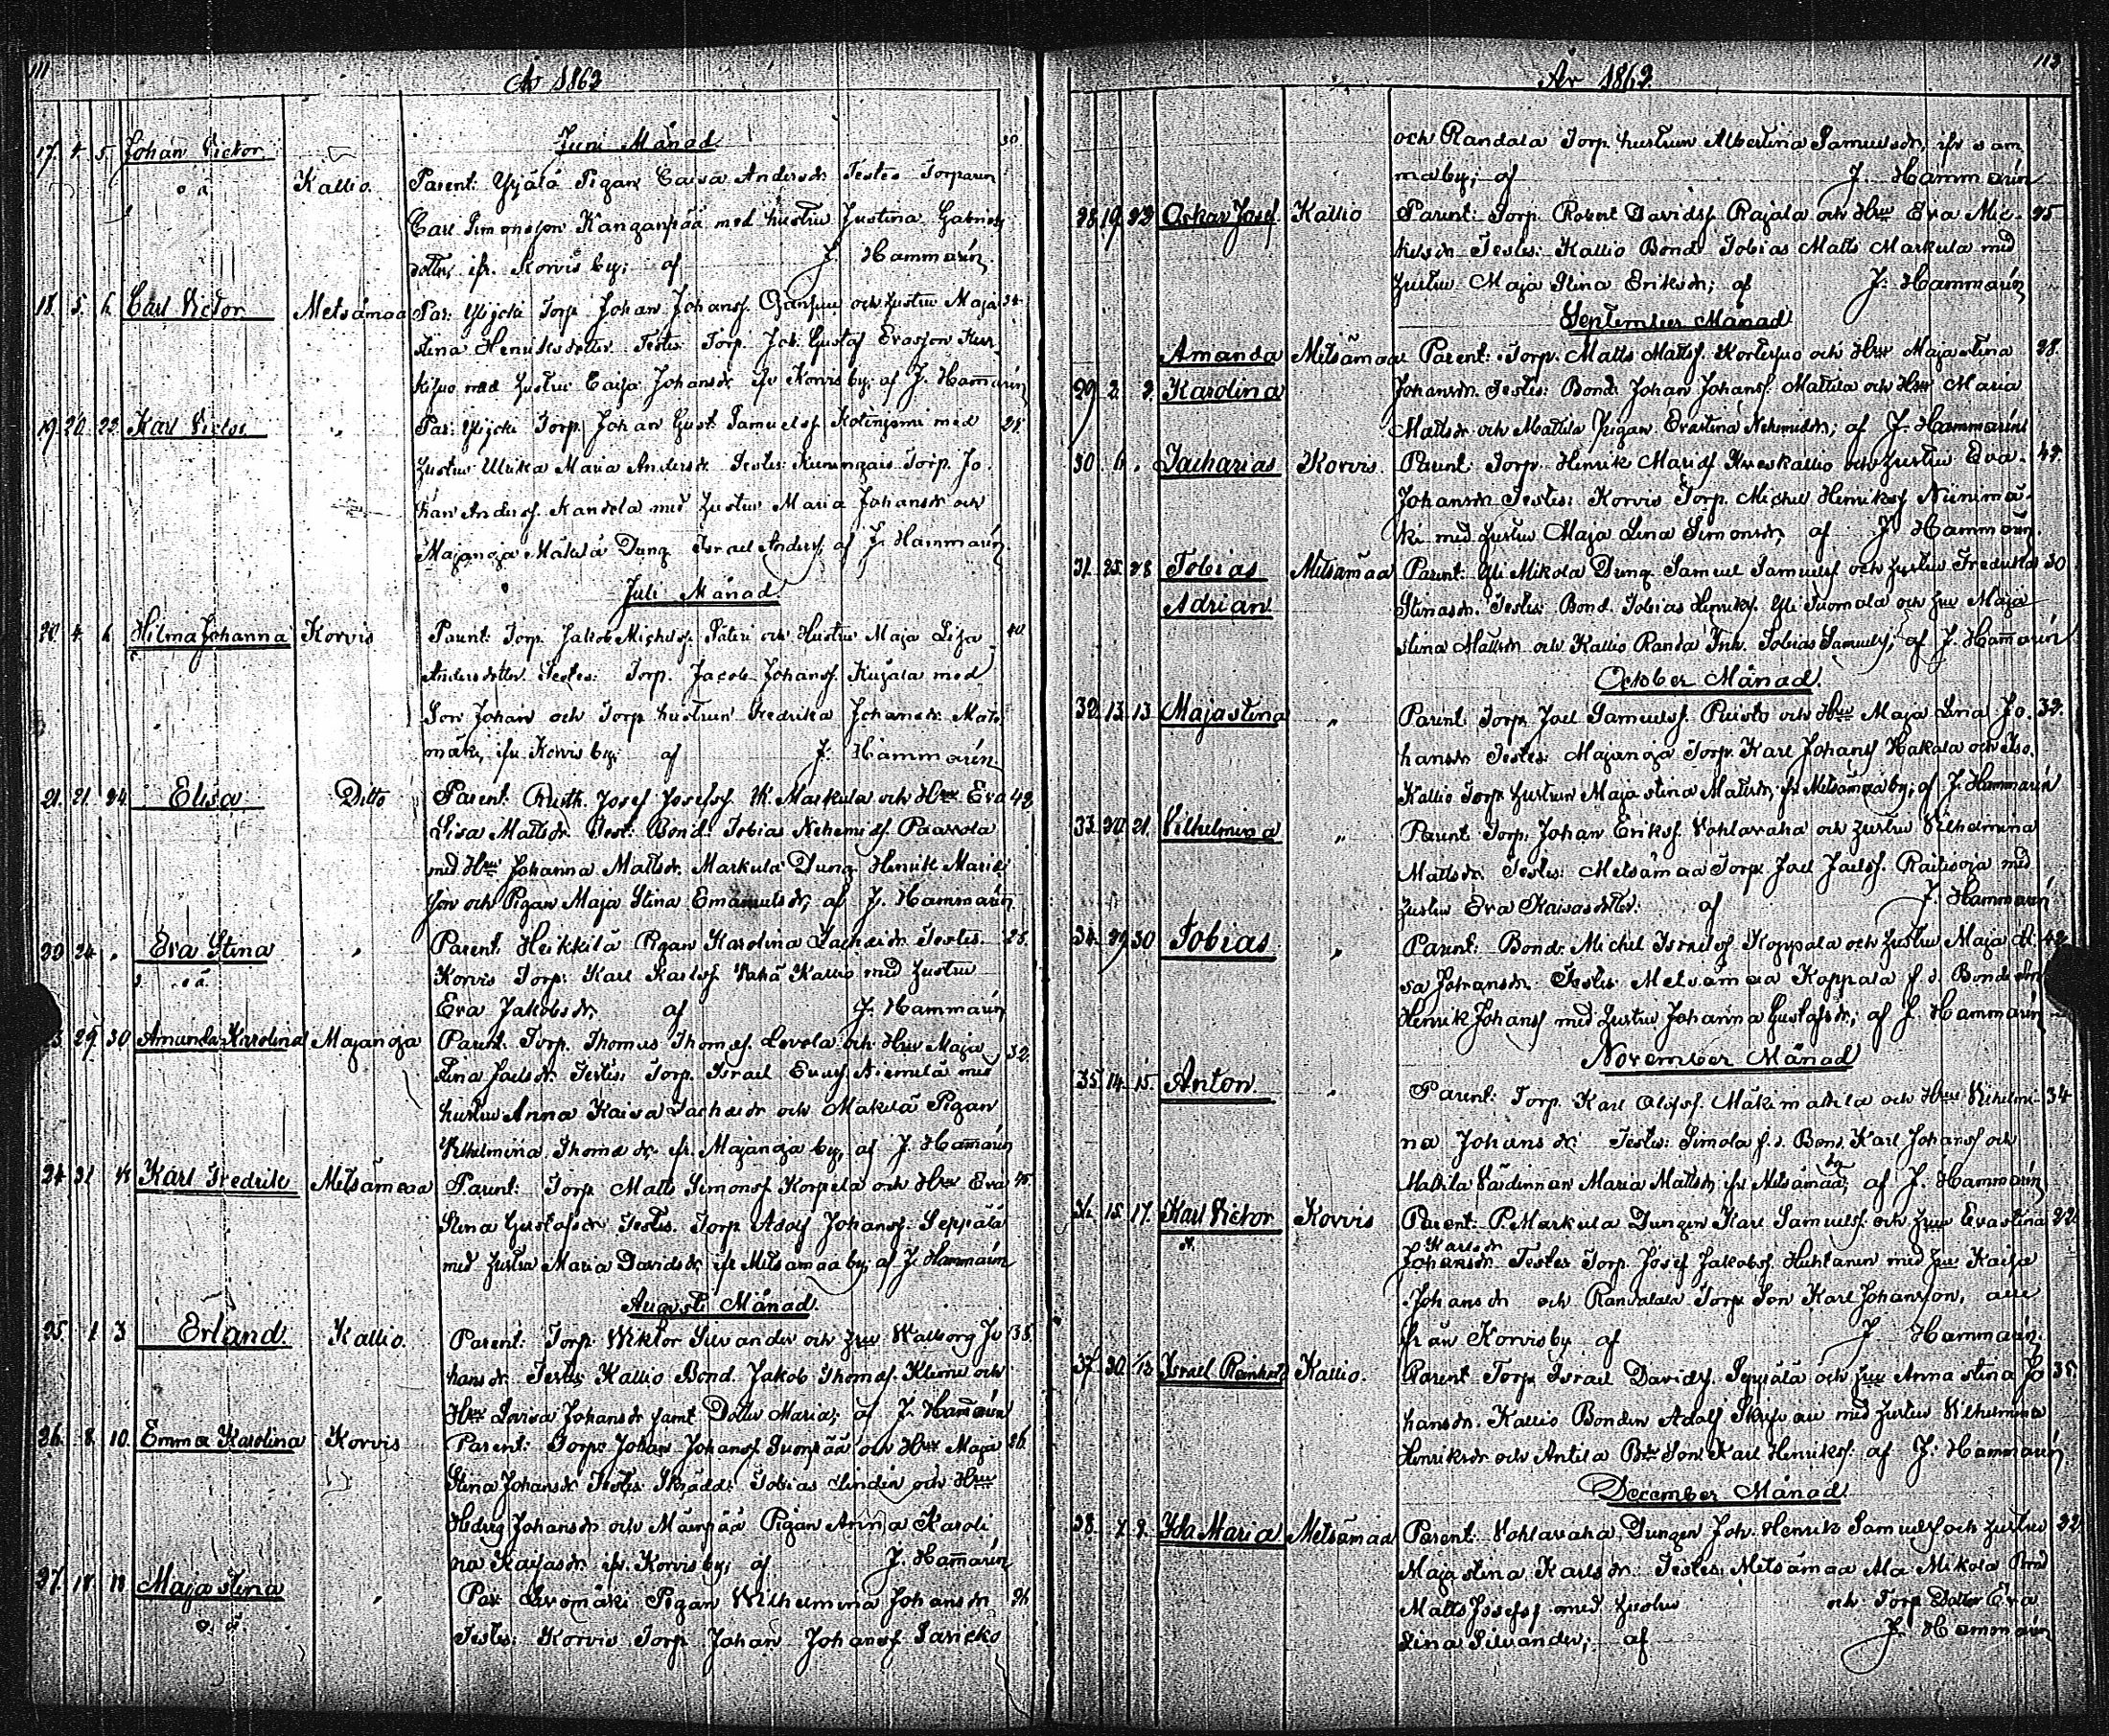 111
År 1863
Juni Månad
17. 4. 5. Johan Victor 30.
o ä Kallio. Parent: Yrjälä Pigan Caisa Andersdr Testes Torparen
Carl Simonsson Kanganpää med hustru Justina Gabriels
dotter, ifr. Korvis by; af J. Hammarén.
18. 5. 6. Carl Victor Metsämaa Par: Torp Johan Johansf. och hustru Maja 34
Stina Henriksdotter. Testes: Torp. Joh. Gustaf Ersson
med hustru Caisa Johansdr ifr Korvis by; af J. Hammarén
19. 20. 22. Karl Victor " Par: Torp. Johan Gust. Samuelsf. Kotinjoni med 28.
hustru Ulrika Maria Andersdr. Testes: Torp. Jo
han Andersf. Kandola med hustru Maria Johansdr och
Majanoja Mäkilä Dräng Israel Andersf; af J. Hammarén
Juli Månad
20. 4. 6. Hilma Johanna Korvis Parent: Torp. Jakob Michelsf. och Hustru Maja Lisa 40
Andersdotter. Testes: Torp. Jacob Johansf. Kujala med
Son Johan och Torp hustrun Fredrika Johansdr
mäki, ifr. Korvis by; af J. Hammarén.
21. 21. 24. Elisa Ditto Parent: Rusth. Josef Josefsf. W. Markula och Hru Eva 42
Lisa Mattsdr. Test: Bond. Tobias Nehemsf Paavola
med Hru Johanna Mattsdr. Markula Dräng Henrik
son och Pigan Maja Stina Emanuelsdr; af J. Hammarén
22. 24. " Eva Stina " Parent: Heikkilä Pigan Karolina Zachridr Testes: 28.
o ä Korvis Torp: Karl Karlsf. Vähä Kallio med hustru
Eva Jakobsdr. af J. Hammarén
23. 29. 30 Amanda Karolina Majanoja Parent: Torp. Thomas Thomsf. Levola och Hru Maja 32.
Lina Joelsdr. Testes: Torp. Israel med
hustru Anna Kaisa Zachridr och Mäkilä Pigan
Vilhelmina Thomsdr, ifr. Majanoja by, af J. Hammarén
24. 31. Karl Fredrik Metsämaa Parent: Torp Matts Simonsf Korpela och Hru Eva 45.
Stina Gustafsdr Testes. Torp Adolf Johansf. Seppälä
med hustru Maria Davidsdr, ifr Metsämaa by; af J. Hammarén
Augusti Månad
25. 1. 3 Erland Kallio. Parent: Torp: Wiktor Silvander och hru Walborg Jo 35.
hansdr. Testes Kallio Bond. Jakob Thomsf. Klemu och
Hru Lovisa Johansdr samt Dotter Maria; af J. Hammarén
26. 8. 10. Emma Karolina Korvis Parent: Torp: Johan Johansf. Suonpää och Hru Maja 26.
Stina Johansdr Testes: Skrädd: Tobias Lindén och Hru
Hedvig Johansdr och Pigan Anna Karoli
na Kaisasdr ifr. Korvis by; af J. Hammarén
27. 18 Maja Stina " Par Pigan Wilhelmina Johansdr 26
o. ä. Testes: Korvis Torp Johan Johansf
113
År 1863.
och Randala Torp. hustrun Albertina Samuelsdr, ifr sam
ma by; af J. Hammarén
28. 19. 23. Oskar Josef Kallio Parent: Torp. Robert Davidsf. Rajala och Hru Eva Mic- 25
helsdr. Testes: Kallio Bond. Tobias Matts Markula med
hustru Maja Stina Eriksdr; af J. Hammarén
September Månad
Amanda Metsämaa Parent: Torp. Matts Mattsf. Kortesuo och Hru Maja Stina 28.
29. 2. 2. Karolina Johansdr. Testes: Bond. Johan Johansf. Mattila och Hru Maria
Mattsdr och Mattila Pigan Evastina Nehemidr; af J. Hammarén
30. 6. " Zacharias Korvis. Parent: Torp. Henrik och hustru Eva 42.
Johansdr Testes: Korvis Torp. Michel Henriksf Niinimä-
ki med hustru Maja Lena Simonsdr, af J. Hammarén.
31. 25. 28 Tobias Metsämaa Parent: Yli Mikola Dräng Samuel Samuelsf och hustru Fredrika 30
Adrian Stinasdr. Testes: Bond. Tobias Henriksf. Yli Tuomola och hru Maja
Stina Mattsdr och Kallio Randa Inh. Tobias Samuelsf; af J. Hammarén
October Månad.
32. 13. 13 Maja Stina " Parent: Torp Joel Samuelsf. Puisto och Hru Maja Lena Jo- 32.
hansdr Testes: Majanoja Torp. Karl Johansf Hakala och Iso
Kallio Torp. hustrun Maja Stina Mattsdr, fr Metsämaa by; af J. Hammarén
33. 20. 21. Vilhelmina " Parent: Torp. Johan Eriksf. Vohlavaha och hustru Vilhelmina
Mattsdr. Testes: Metsämaa Torp. Joel Joelsf. med
hustru Eva Kaisasdotter. af J. Hammarén
34. 29. 30 Tobias " Parent: Bond. Michel Israelsf Koppala och hustru Maja 42
sa Johansdr. Testes: Metsämaa Koppala f.d. Bond
Henrik Johansf med hustru Johanna Gustafsdr; af J. Hammarén
November Månad
35 14. 15. Anton. " Parent: Torp. Karl Olofsf. Mäkimattila och Hru Vilhelmi- 34
na Johansdr Testes: Simola f.d. Bond. Karl Johansf och
Mattila Värdinnan Maria Mattsdr, ifr Metsämaa by; af J. Hammarén
36. 15. 17. Karl Victor Korvis Parent: P. Markula Drängen Karl Samuelsf. och hru Evastina 22.
Karlsdr
Johansdr. Testes Torp. Josef Jakobsf. Huhtanen med hru Kaisa
Johansdr och Randala Torp Son Karl Johansson, alle
från Korvis by af J. Hammarén.
37. 30. 1/12 Israel Reinhold Kallio. Parent: Torp. Israel Davidsf. Seppälä och hru Anna Stina Jo 35.
hansdr. Kallio Bonden Adolf med hustru Vilhelmina
Henriksdr och Antila Bde Son Karl Henriksf: af J. Hammarén
December Månad.
38. 7. 9. Ida Maria Metsämaa Parent: Vohlavaha Drängen Joh. Henrik Samuelsf och hustru 22.
Maja Stina Karlsdr. Testes: Metsämaa Ala Mikola Bond
Matts Josefsf med hustru och Torp Dotter Eva
Stina Silvander; af J. Hammarén